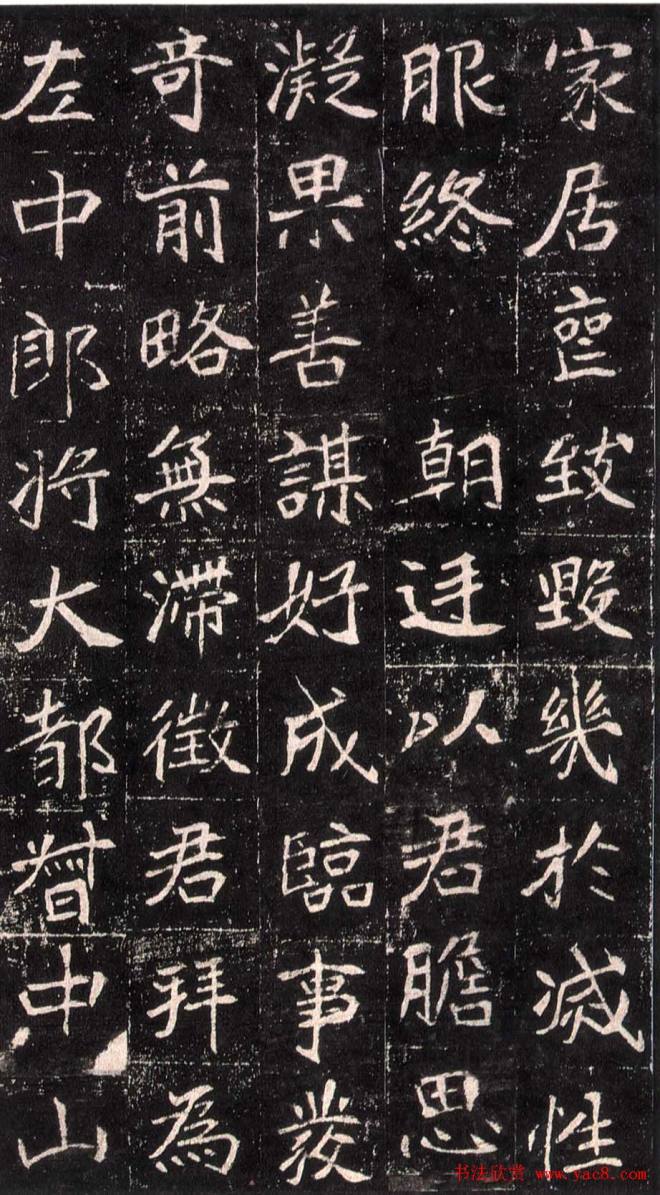 家居喪致毀幾於滅性
服終 朝廷以君膽思
凝果善謀好成臨事發
奇前略無滯徵君拜為
左中郎將大都督中山
书法欣赏 www.yac8.com